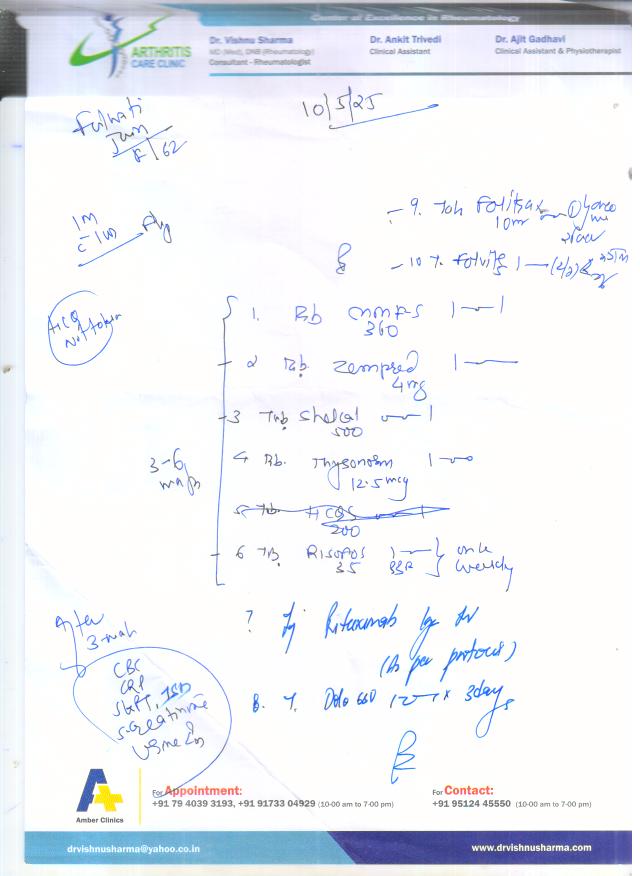 Center of Excellence in Rheumatology
ARTHRITIS
CARE CLINIC
Dr. Vishnu Sharma
MD (Med), DNB (Rheumatology)
Consultant - Rheumatologist
Dr. Ankit Trivedi
Clinical Assistant
Dr. Ajit Gadhavi
Clinical Assistant & Physiotherapist
10/5/25
F/62
9. Tab Folitrax
10
10 T. Folvite 1
HCQ
Not taken
1. 360
2 Tab. Zempred 1
4mg
3 Tab Shelcal 1
500
4 Tab. Thyronorm 1
12.5 mcg
5 Tab. HCQS 1
200
6 Tab. Risofos 1
35
once
weekly
3-6
After
3
CBC
CRP
SGPT,
S. Creatinine
? Inj Rituximab IV
(As per protocol)
8. T. Dolo 650 x 3days
Amber Clinics
For Appointment:
+91 79 4039 3193, +91 91733 04929 (10-00 am to 7-00 pm)
For Contact:
+91 95124 45550 (10-00 am to 7-00 pm)
drvishnusharma@yahoo.co.in
www.drvishnusharma.com